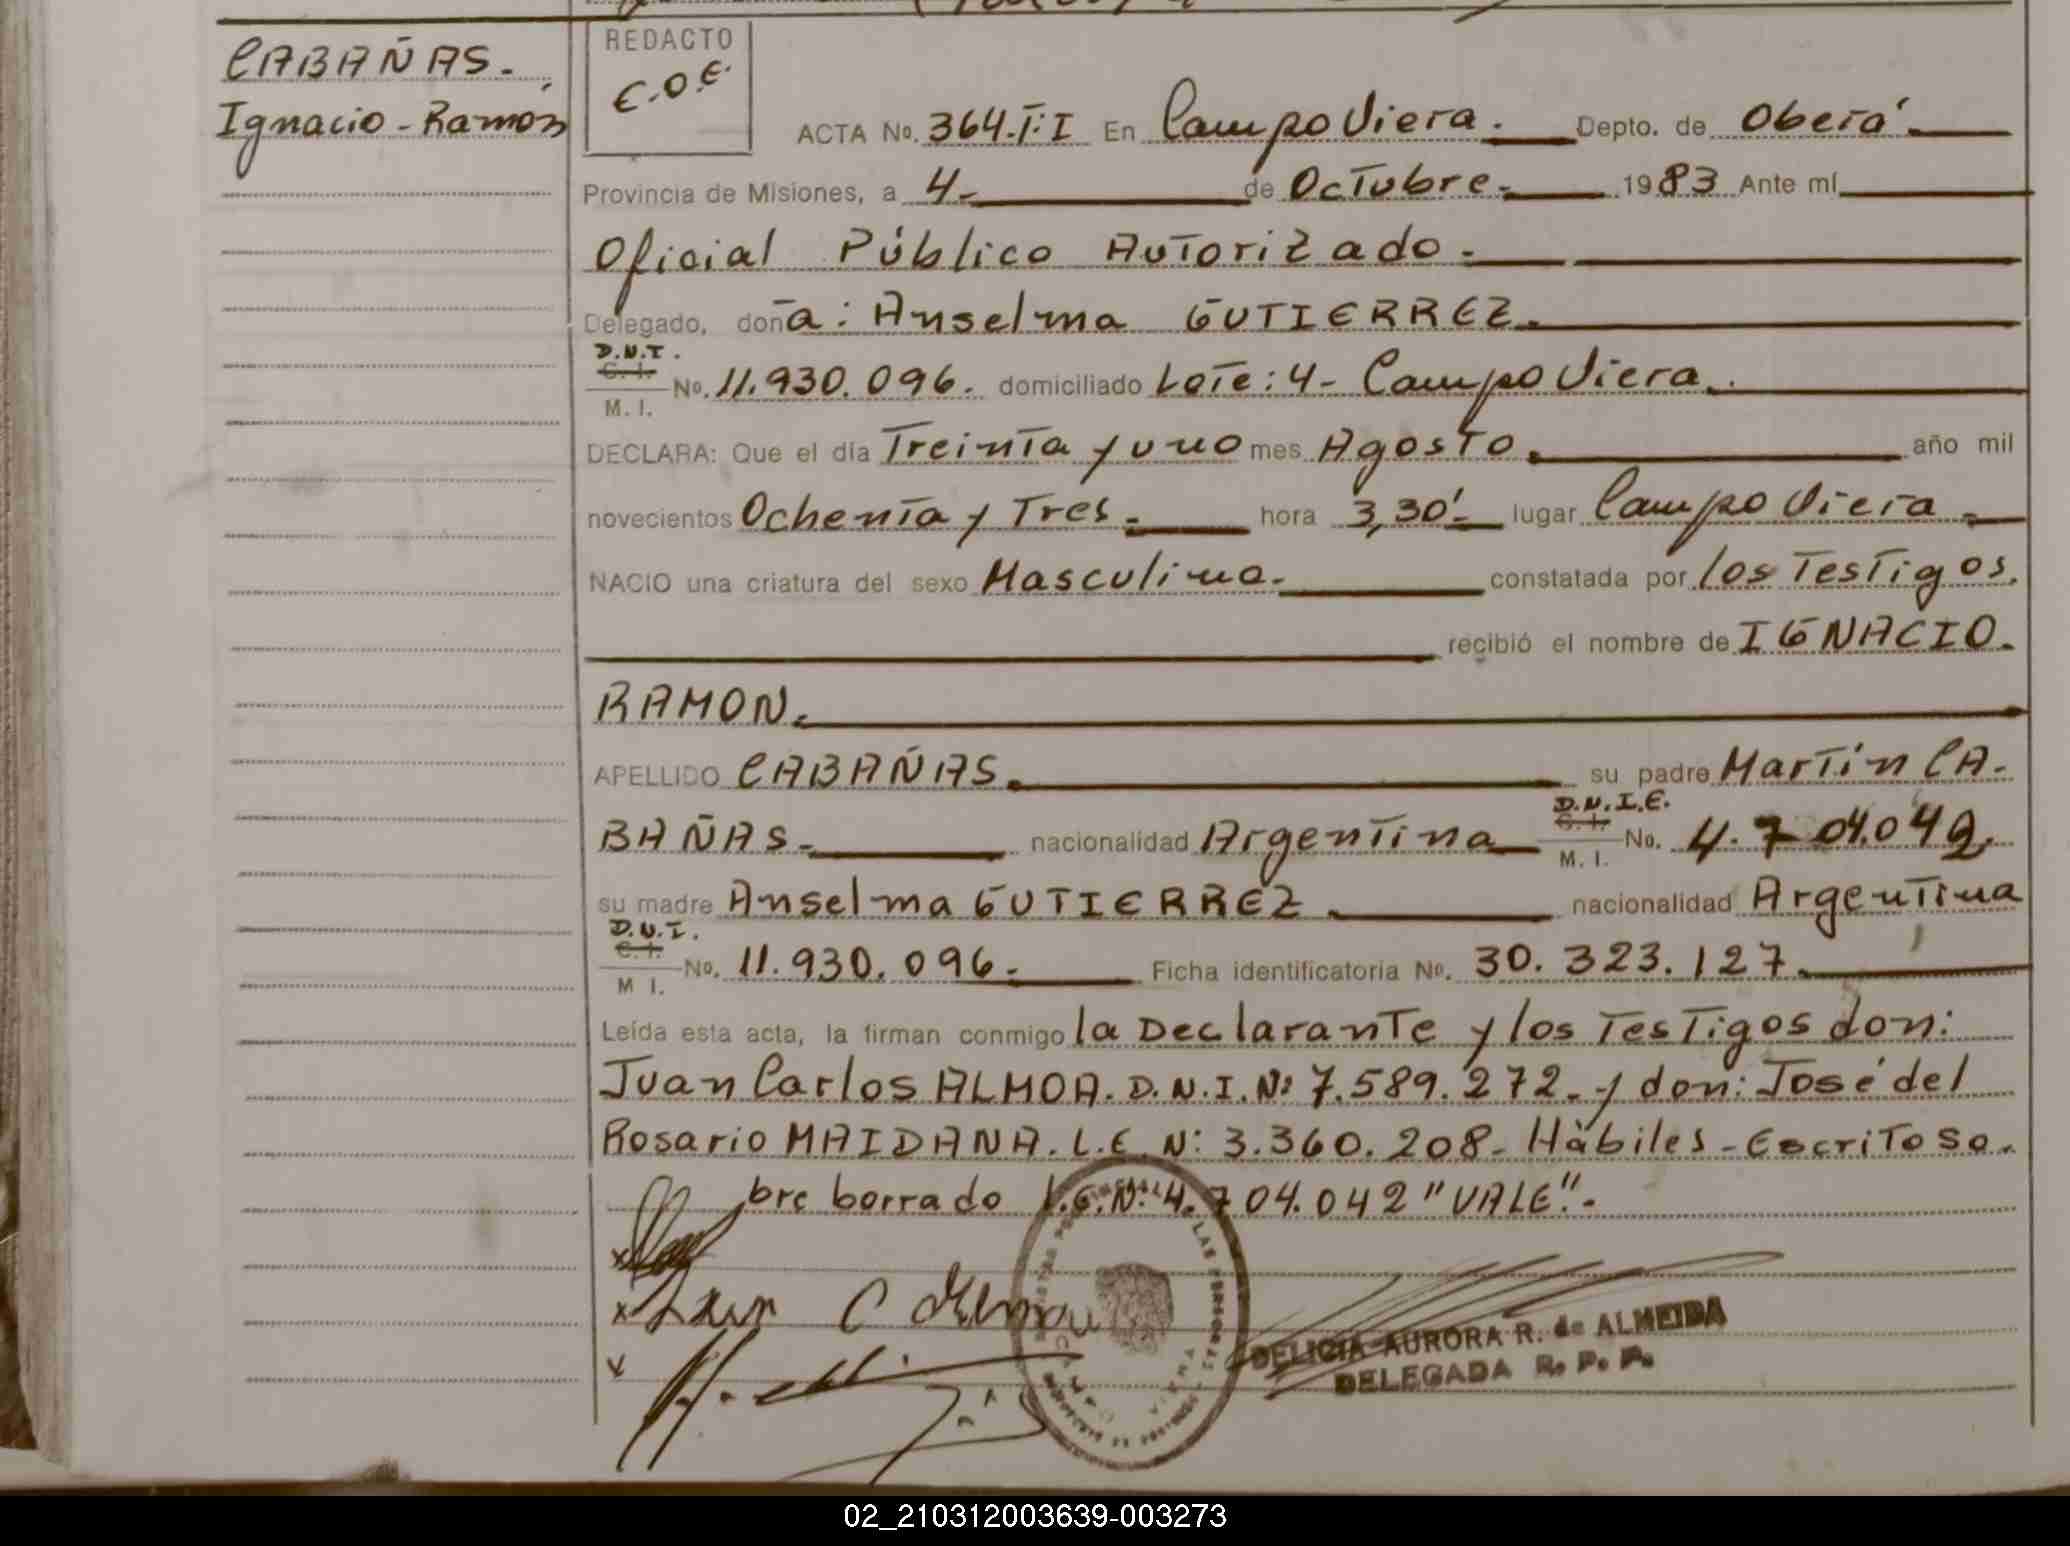 CABAÑAS.
Ignacio - Ramón
REDACTO
C.O.E.
ACTA No. 364.T:I En Campo Viera. Depto. de Oberá.
Provincia de Misiones, a 4- de Octubre- 1983 Ante mí
Oficial Público Autorizado-
Delegado, doña: Anselma GUTIERREZ.
D.N.I.
C. I.
M. I.
No. 11.930.096. domiciliado Lote: 4- Campo Viera.
DECLARA: Que el día Treinta y uno mes Agosto. año mil
novecientos Ochenta y Tres- hora 3,30'- lugar Campo Viera-
NACIO una criatura del sexo Masculino. constatada por los Testigos.
recibió el nombre de IGNACIO.
RAMON.
APELLIDO CABAÑAS. su padre Martín CA-
BAÑAS- nacionalidad Argentina
D.N.I.E.
C. I.
M. I.
No. 4.704.042.
su madre Anselma GUTIERREZ. nacionalidad Argentina
D.N.I.
C. I.
M I.
No. 11.930.096. Ficha identificatoria No. 30.323.127.
Leída esta acta, la firman conmigo la Declarante y los Testigos don:
Juan Carlos ALMOA. D.N.I. Nº 7.589.272. y don: José del
Rosario MAIDANA. L.E. Nº: 3.360.208- Hábiles- Escrito so-
bre borrado L.E. Nº: 4.704.042 "VALE".-
DELICIA AURORA R. de ALMEIDA
DELEGADA R. P. P.
02_210312003639-003273